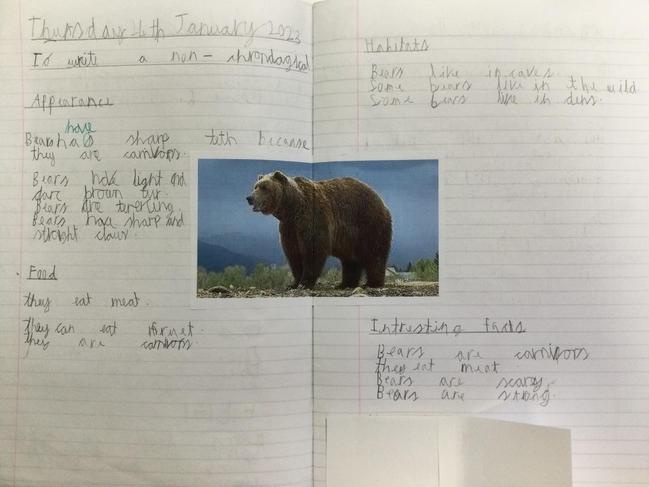 Thursday 4th January 2023
To write a non-chrondagical
Appearance
have
Bears has sharp teth because
they are carnivors.
Bears have light and
darc brown fur.
Bears are
Bears have sharp and
straight claws.
Food
they eat meat.
They can eat
they are carnivors.
Habitats
Bears live in caves.
Some bears live in the wild.
Some bears live in dens.
Intresting facts
Bears are carnivors
they eat meat.
Bears are scary.
Bears are strong.